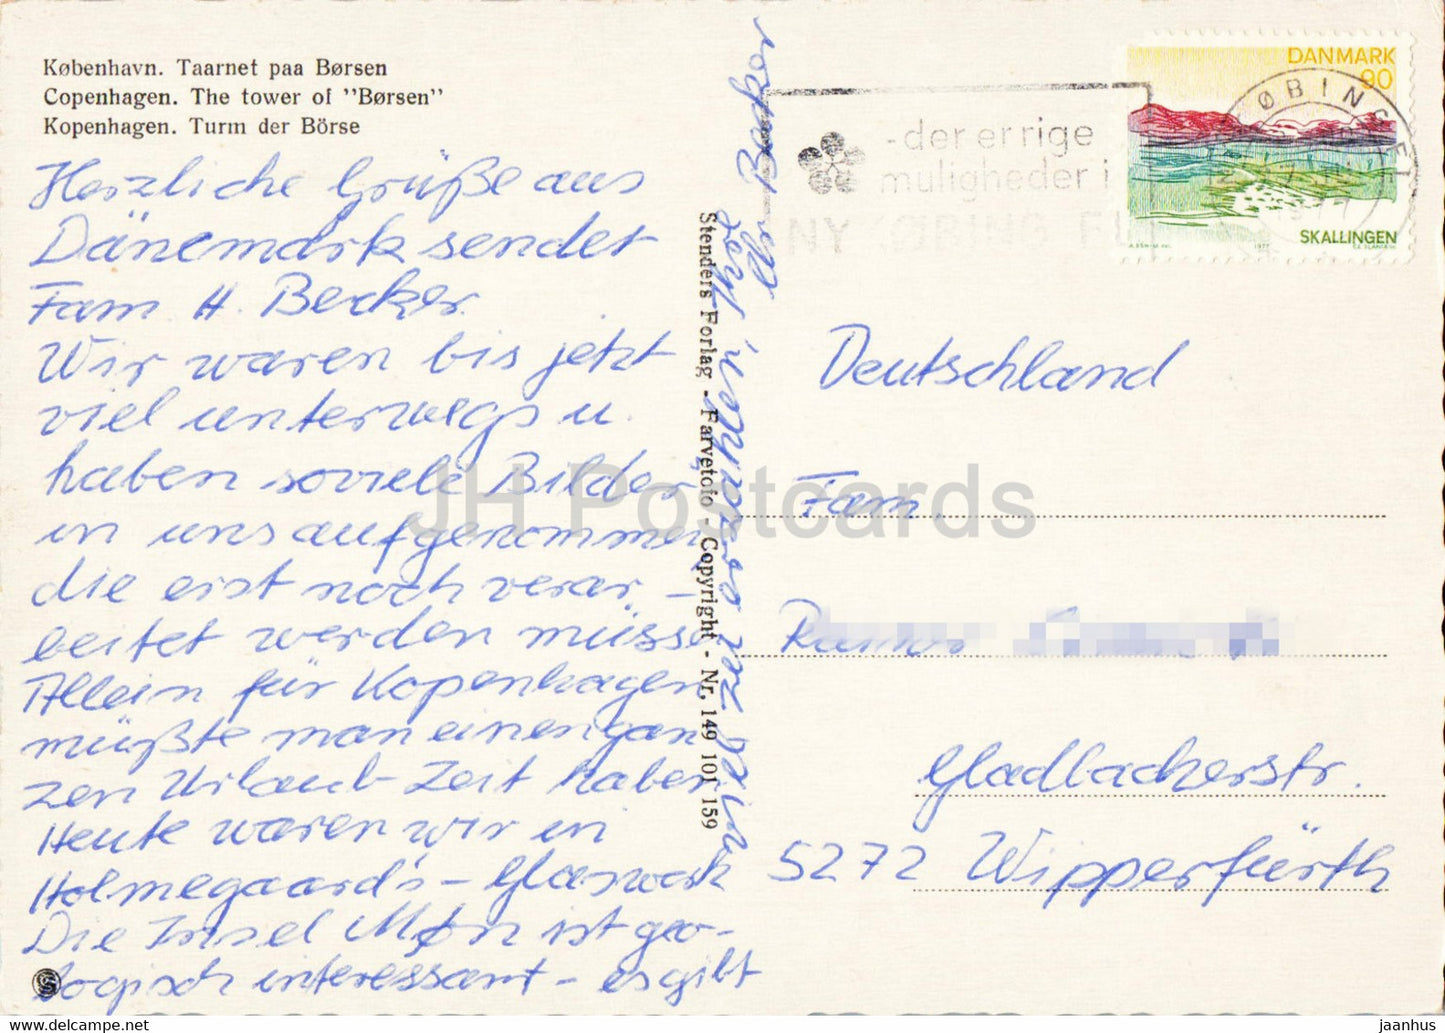 København. Taarnet paa Børsen
Copenhagen. The tower of "Børsen"
Kopenhagen. Turm der Börse
Herzliche Grüße aus
Dänemark sendet
Fam H. Becker.
Wir waren bis jetzt
viel unterwegs u.
haben soviele Bilder
in uns aufgenommen
die erst noch verar-
beitet werden müssen
Allein für Kopenhagen
müßte man einen gan
zen Urlaub-Zeit haben
Heute waren wir in
Holmegaard's - Glaswerk
Die Insel Møn ist geo-
logisch interessant - es gibt
Becker
Stenders Forlag - Farvefoto - Copyright - Nr. 149 101 159
DANMARK
90
SKALLINGEN
1977
- der er rige
muligheder i
NYKØBING F
Deutschland
Fam.
Gladbacherstr.
5272 Wipperfürth
JH Postcards
www.delcampe.net
jaanhus